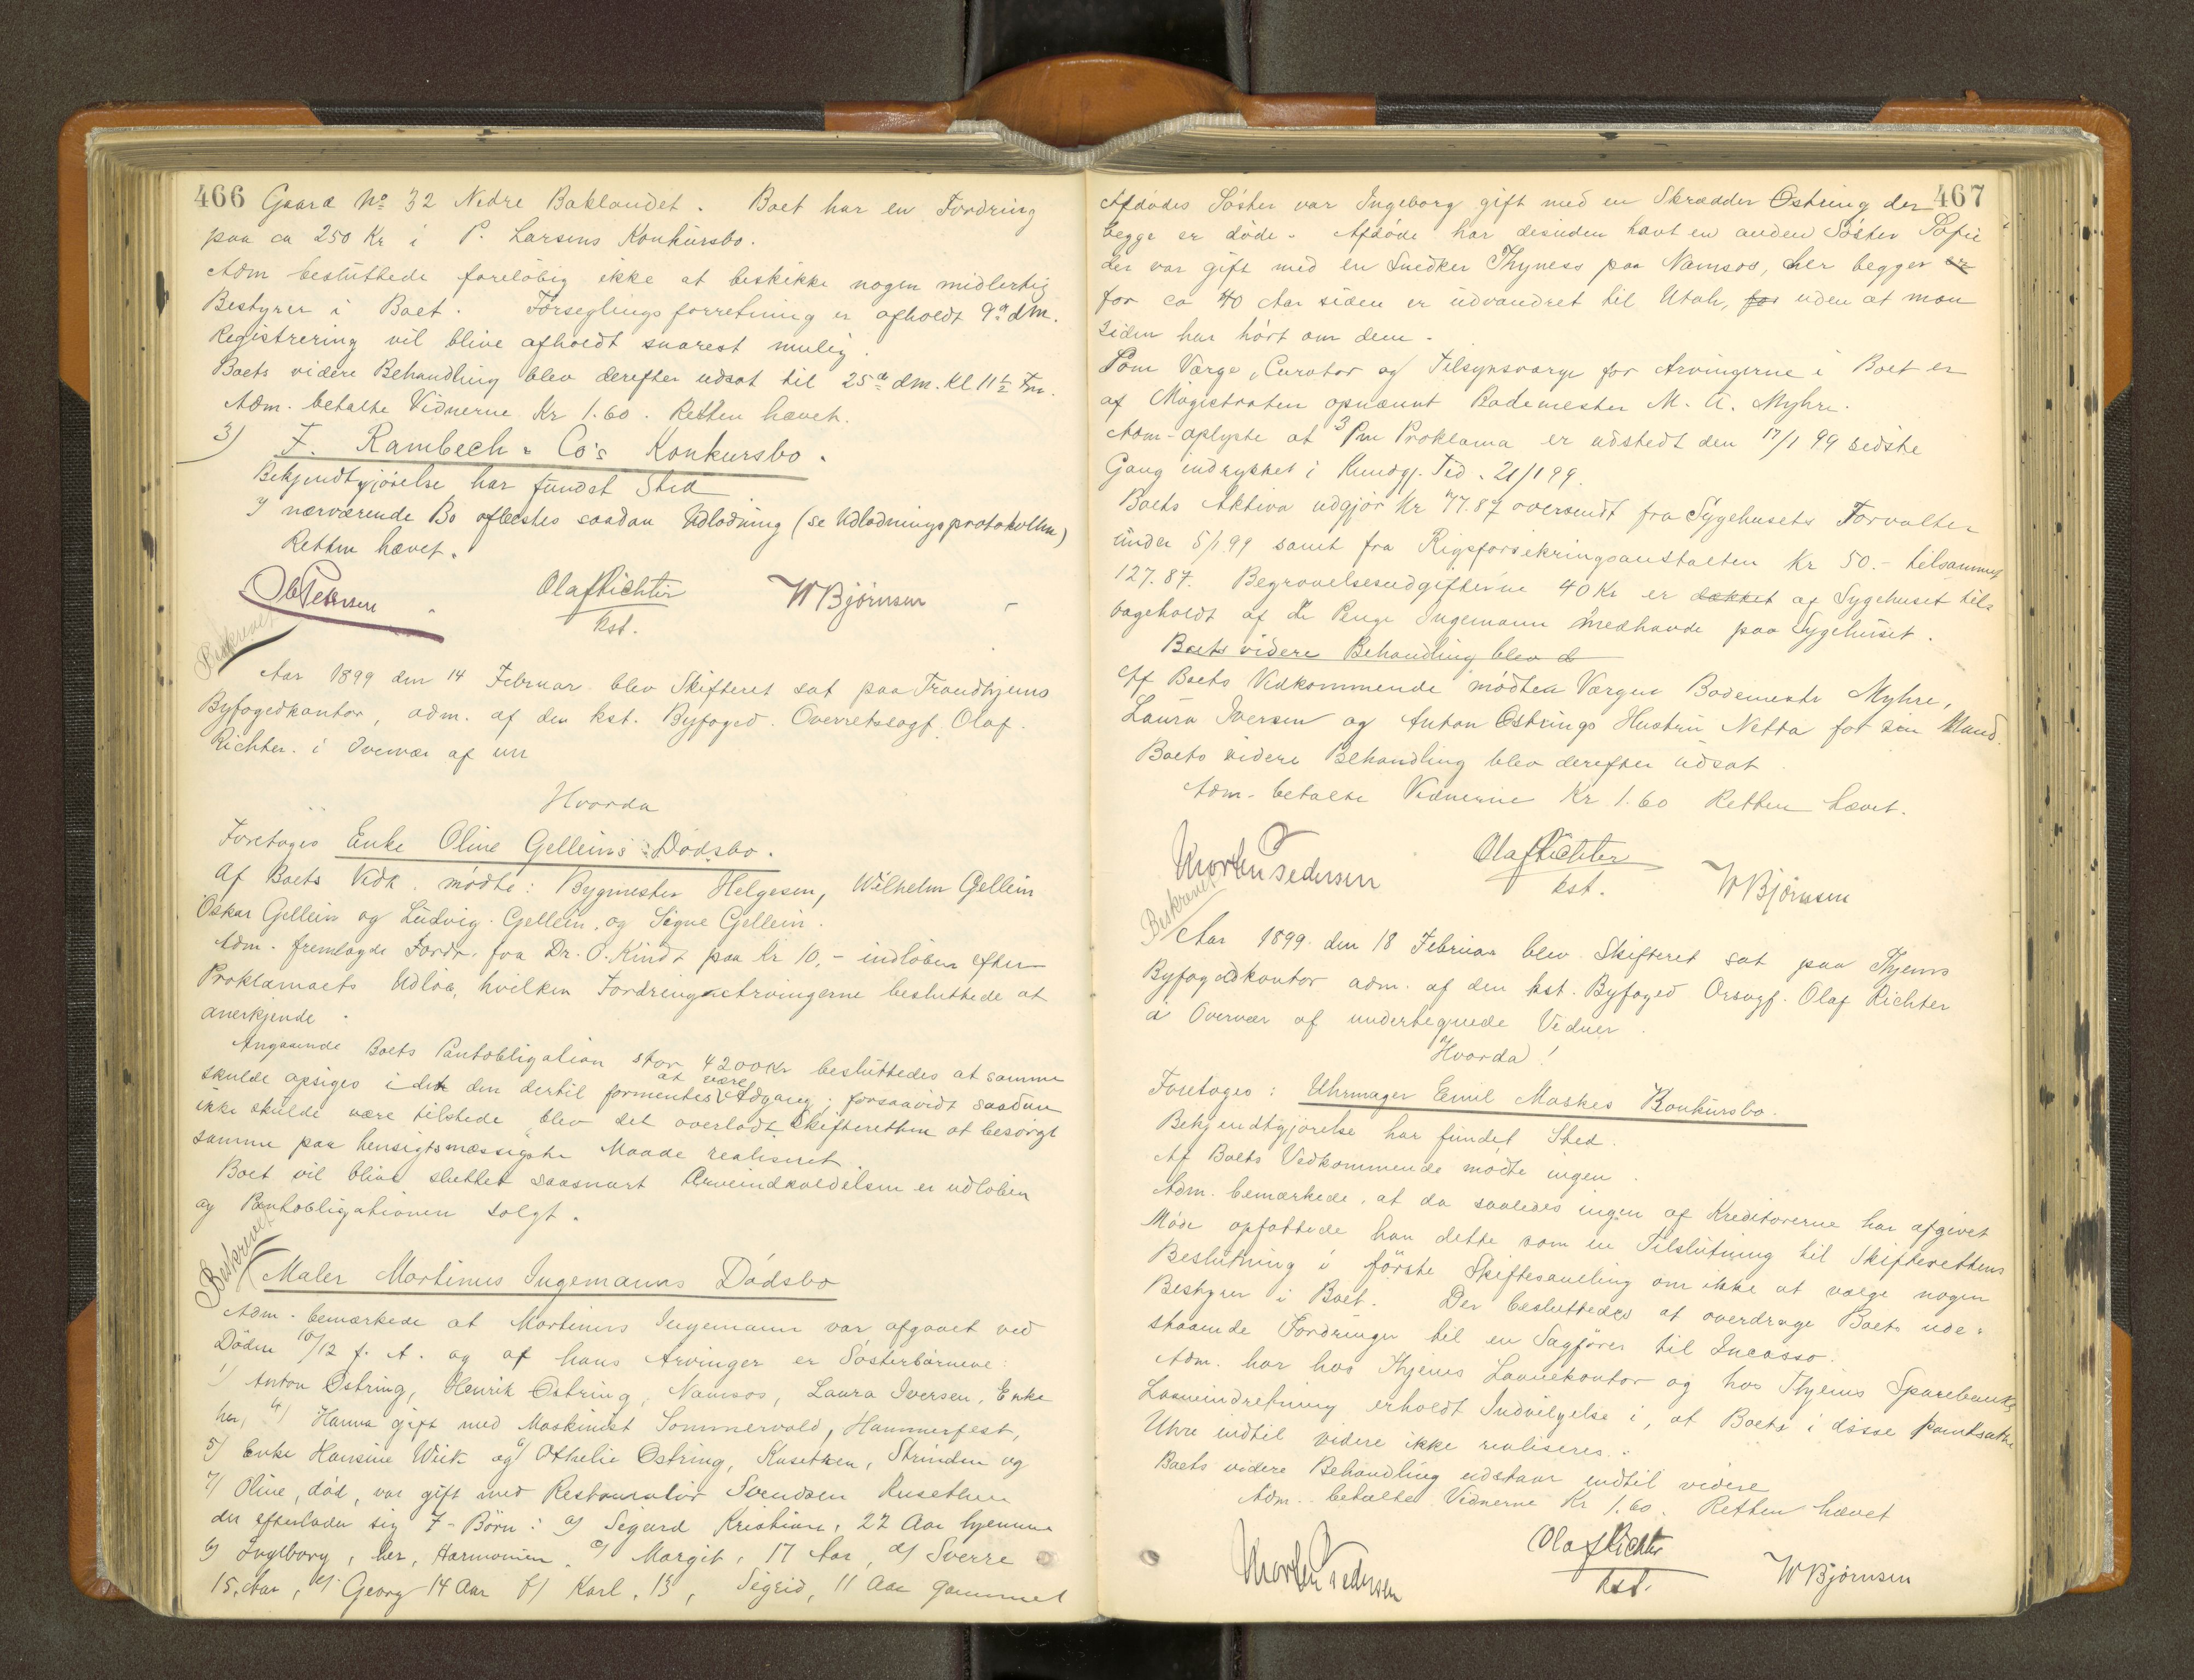 466 Gaard No 32 Nedre Baklandet. Boet har en Fordring
paa ca 250 Kr i P. Larsens Konkursbo.
Adm besluttede foreløbig ikke at beskikke nogen midlertig
Bestyrer i Boet. Forseglingsforretning er afholdt 9de dm.
Registrering vil blive afholdt snarest mulig.
Boets videre Behandling blev derefter udsat til 25de dm. Kl 11½ Fm.
Adm. betalte Vidnerne Kr 1.60. Retten hævet.
3) F. Rambech & Co's Konkursbo.
Bekjendtgjørelse har fundet Sted
I nærværende Bo aflæstes saadan Udlodning (se Udlodningsprotokollen)
Retten hævet.
Ole Petersen Olaf Richter W Bjørnsen
kst.
Beskrevet
Aar 1899 den 14 Februar blev Skifteret sat paa Trondhjems
Byfogedkontor, adm. af den kst. Byfoged. Overretssagf. Olaf
Richter. i Overvær af un
Hvorda
Foretoges Enke Oline Gelleins Dødsbo.
Af Boets Vedk. mødte: Bygmester Helgesen, Wilhelm Gellein
Oskar Gellein og Ludvig Gellein, og Signe Gellein.
Adm. fremlagde Fordr. fra Dr. O. Kindt paa Kr 10.- indløben efter
Proklamaets Udløb, hvilken Fordring Arvingerne besluttede at
anerkjende.
Angaaende Boets Pantobligation stor 4200 Kr besluttedes at samme
skulde opsiges i det den dertil formentes at være Adgang; forsaavidt saadan
ikke skulde være tilstede blev det overladt Skifteretten at besørge
samme paa hensigtsmæssigste Maade realiseret
Boet vil blive sluttet saasnart Arveindkaldelsen er udløben
og Pantobligationen solgt.
Beskrevet
Maler Martinus Ingemanns Dødsbo
Adm. bemærkede at Martinus Ingemann var afgaaet ved
Døden /12 f. A. og af hans Arvinger er Søsterbørnene:
1) Anton Østring, Henrik Østring, Namsos, Laura Iversen, Enke
her, 4) Hanna gift med Maskinist Sommervold, Hammerfest,
5) Enke Hansine Wiik og 6) Othelie Østring, Kusethen, Strinden og
7) Oline, død, var gift med Restauratør Svendsen Rusethen
der efterlader sig 7 Børn: a) Sigurd Kristian, 22 Aar hjemme
b) Ingeborg, her, Harmonien, c) Margit, 17 Aar, d) Sverre
15 Aar, e) Georg 14 Aar f) Karl, 13, Sigrid, 11 Aar gammel
467
Afdødes Søster var Ingeborg gift med en Skrædder Østring der
begge er døde. Afdøde har desuden havt en anden Søster Sofie
der var gift med en Snedker Thyness paa Namsos, her begger er
for ca 40 Aar siden er udvandret til Utah, for uden at man
siden har hørt om dem.
Som Værge, Curator og Tilsynsværge for Arvingerne i Boet er
af Magistraten opnævnt Bademester M. A. Myhre.
Adm. oplyste at 3 Mn Proklama er udstedt den 17/1 99 sidste
Gang indrykket i Kundgj. Tid. 21/1 99.
Boets Aktiva udgjør Kr 77.87 oversendt fra Sygehusets Forvalter
under 5/1 99 samt fra Rigsforsikringsanstalten Kr 50.- tilsammen
127.87. Begravelsesudgifterne 40 Kr er dækket af Sygehuset til=
bageholdt af de Penge Ingemann medhavde paa Sygehuset.
Boets videre Behandling blev d
Af Boets Vedkommende mødte Værgen Bademester Myhre,
Laura Iversen og Anton Østrings Hustru Netta for sin Mand.
Boets videre Behandling blev derefter udsat.
Adm. betalte Vidnerne Kr 1.60 Retten hævet.
Morten Pedersen Olaf Richter W Bjørnsen
kst.
Beskrevet
Aar 1899 den 18 Februar blev Skifteret sat paa Thjems
Byfogedkontor adm. af den kst. Byfoged Orsagf. Olaf Richter
i Overvær af undertegnede Vidner.
Hvorda!
Foretoges: Uhrmager Emil Moskes Konkursbo.
Bekjendtgjørelse har fundet Sted.
Af Boets Vedkommende mødte ingen.
Adm. bemærkede, at da saaledes ingen af Kreditorerne har afgivet
Møde opfattede han dette som en Tilslutning til Skifterettens
Beslutning i første Skiftesamling om ikke at vælge nogen
Bestyrer i Boet. Der besluttedes at overdrage Boets ude=
staaende Fordringer til en Sagfører til Incasso.
Adm. har hos Thjems Laanekontor og hos Thjems Sparebanks
Laaneindretning erholdt Indvilgelse i, at Boets i disse pantsatte
Uhre indtil videre ikke realiseres.
Boets videre Behandling udstaar indtil videre
Adm. betalte Vidnerne Kr 1.60. Retten hævet
Morten Pedersen Olaf Richter W Bjørnsen
kst.